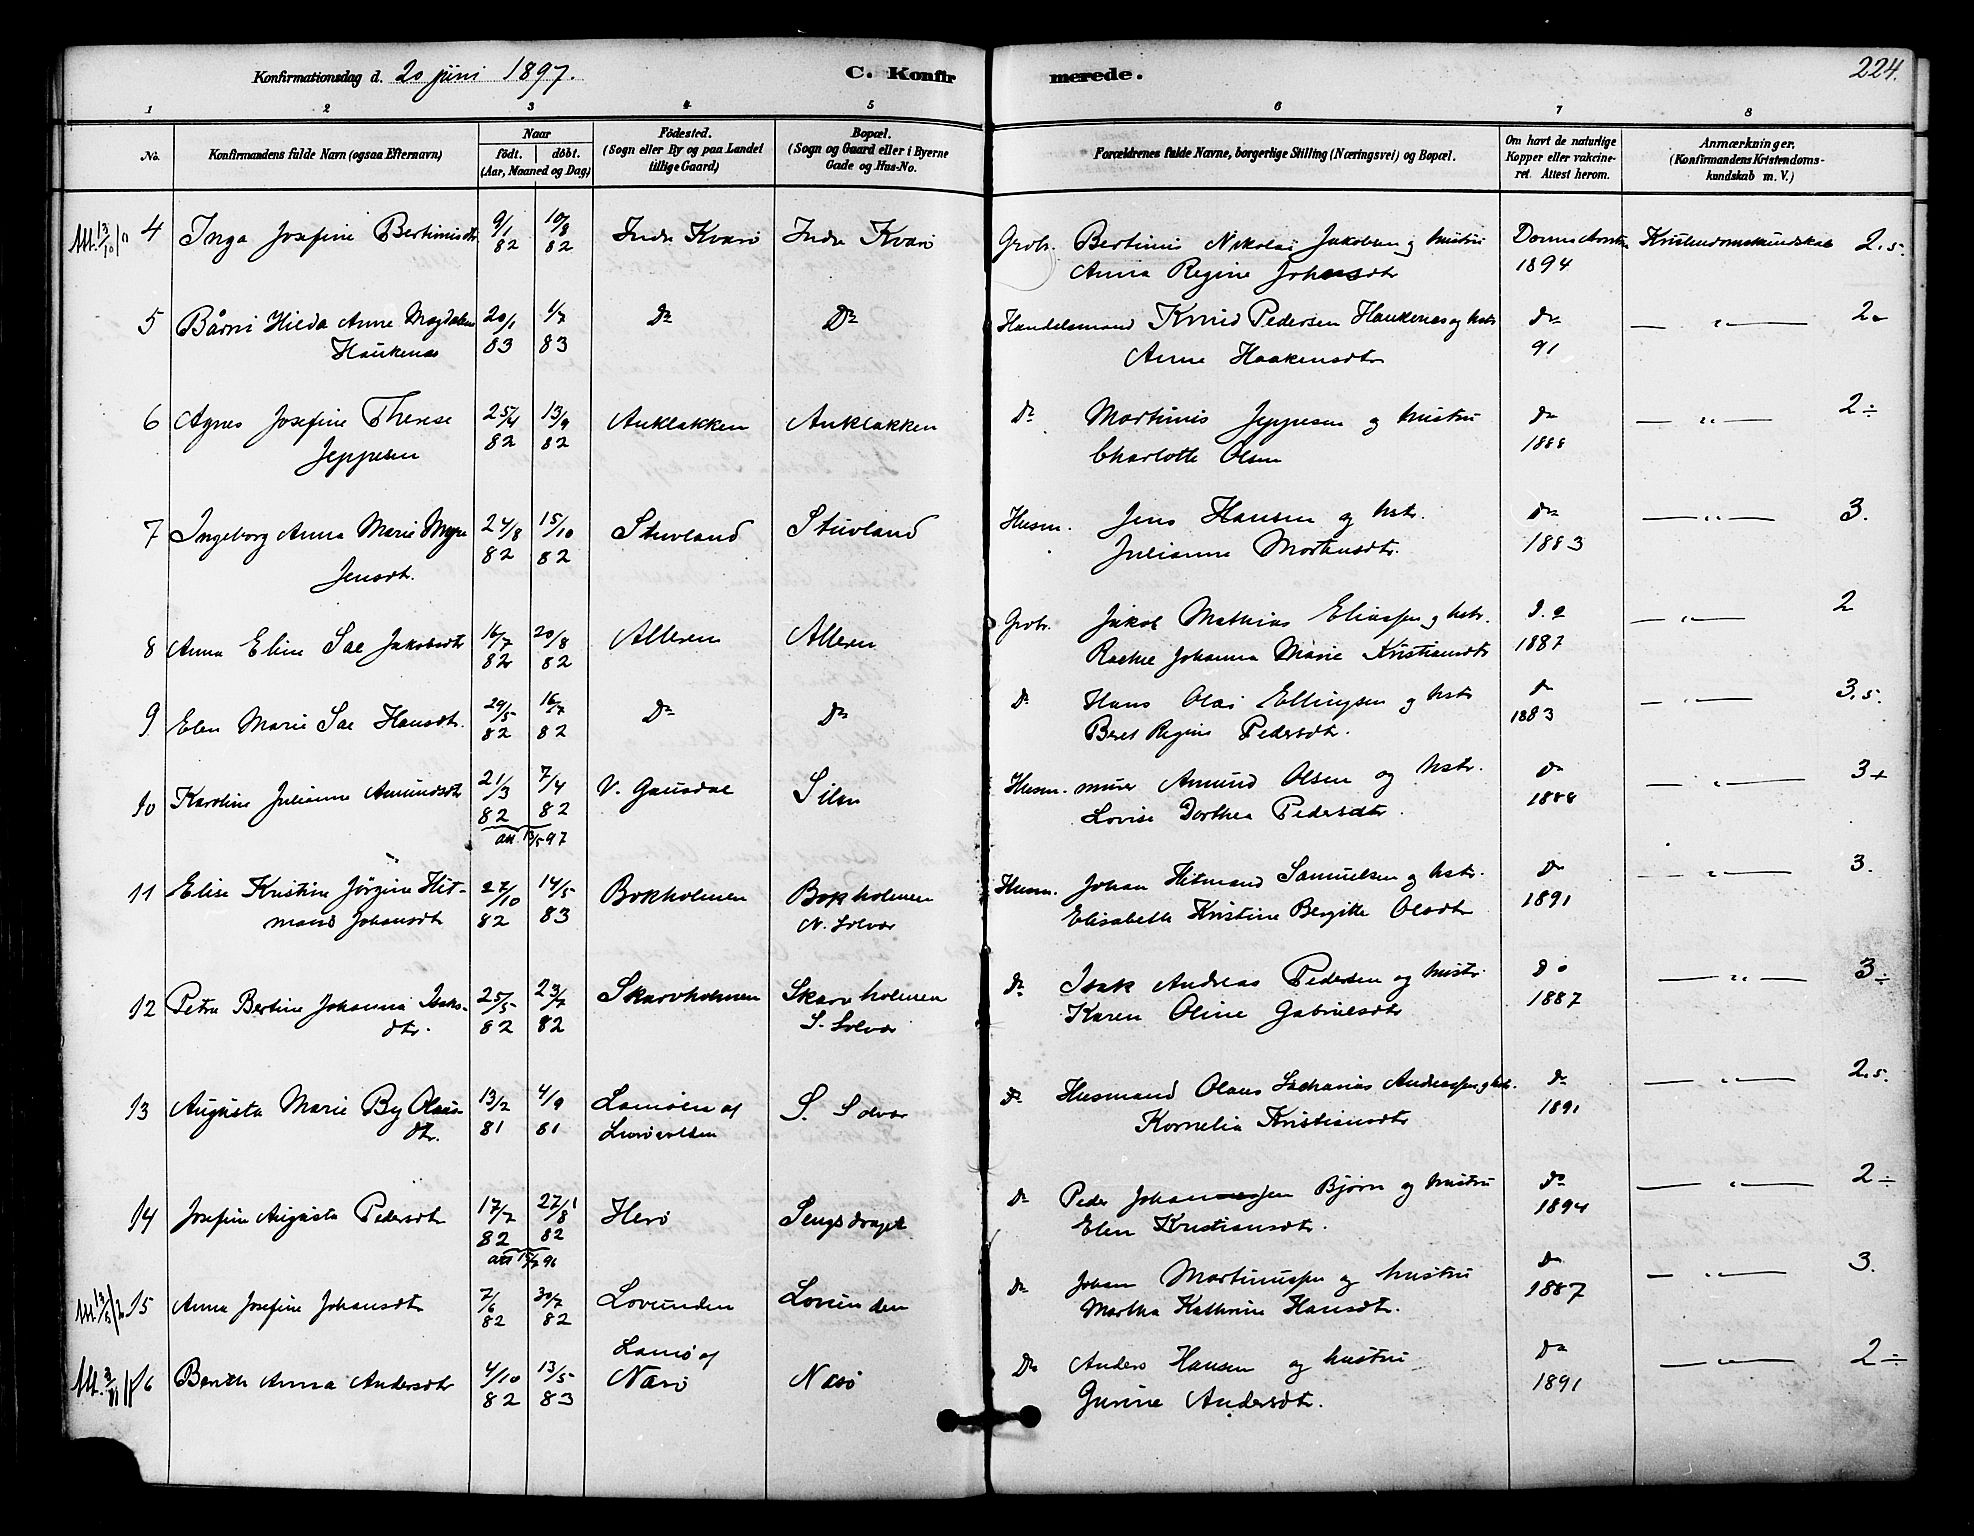 Konfirmationsdag d. 20 juni 1897.
C. Konfirmerede.
224.
1 2 3 4 5 6 7 8
No. Konfirmandens fulde Navn (ogsaa Efternavn) Naar født. døbt. (Aar, Maaned og Dag) Fødested. (Sogn eller By og paa Landet tillige Gaard) Bopæl. (Sogn og Gaard eller i Byerne Gade og Hus-No. Forældrenes fulde Navne, borgerlige Stilling (Næringsvei) og Bopæl. Om havt de naturlige Kopper eller vakcineret. Attest herom. Anmærkninger. (Konfirmandens Kristendomskundskab m. V.)
4 Inga Josefine Bertinusdtr 9/1 82 10/8 82 Indre Kvarø Indre Kvarø Grbr. Bertinus Nikolai Jakobsen og hustru
Anna Regine Johnsdtr 1894 Kristendomskundskab 2.5
5 Hilda Anne Magdalena 20/1 83 1/7 83 Do Do Handelsmand Knud Pedersen Haukenæs og hstr Do 91 2
Haukenæs Anne Haakensdtr
6 Agnes Josefine Therese 25/4 82 13/9 82 Auklakken Auklakken Do Martinus Jeppesen og hustru Do 1888 2÷
Jeppesen Charlotte Olsen
7 Ingeborg Anna Marie Myre 24/8 82 15/10 82 Stuvland Stuvland Husm. Jens Hansen og hstr. Do 1883 3.
Jensdt. Julianne Mortensdtr.
8 Anna Eline Sae Jakobsdtr 16/7 82 20/8 82 Alleren Alleren Grbr. Jakob Mathias Eliassen og hstr. Do 1887 2
Johanna Marie Kristiansdtr
9 Elen Marie Sae Hansdtr. 29/5 82 16/7 82 Do Do Do Hans Olai Ellingsen og hstr Do 1883 3.5.
Beret Regine Pedersdtr.
10 Karoline Julianne Amundsdtr 21/3 82 7/4 82 V. Gausdal Silen Husm. murer Amund Olsen og hstr. Do 1888 3+
att. 13/5 97 Lovise Dorthea Pedersdtr.
11 Elise Kristine Jörgine Hit- 27/10 82 14/5 83 Bokholmen Bokholmen Husm. Johan Hitmand Samuelsen og hstr. Do 1891 3.
mand Johansdtr N. Solvær Elisabeth Kristine Bergitte Olsdtr
12 Petra Bertine Johanna Isaks- 25/5 82 23/7 82 Skarvholmen Skarvholmen Do Isak Andreas Pedersen og hustr. Do 1887 3÷
dtr. S. Solvær Karen Oline Gabrielsdtr
13 Augusta Marie By Olaus- 13/2 81 4/9 81 Lamøen af S. Solvær Do Husmand Olaus Zacharias Andreassen og hstr. Do 1891 2.5.
dtr. Kornelia Kristiansdtr
14 Josefine Augusta Pedersdtr 17/7 82 27/8 82 Herø Sengsdraget Do Peder Johannessen Bjørn og hustru Do 1894 2÷
Elen Kristiansdtr.
15 Anna Josefine Johansdtr 7/6 82 30/7 82 Lovunden Lovunden Do Johan Martinussen og hustru Do 1887 3.
Martha Kathrine Hansdtr.
16 Anna Andersdtr 4/10 82 13/5 83 Lamø af Næsø Næsø Do Anders Hansen og hustru Do 1891 2÷
Gurine Andersdtr.